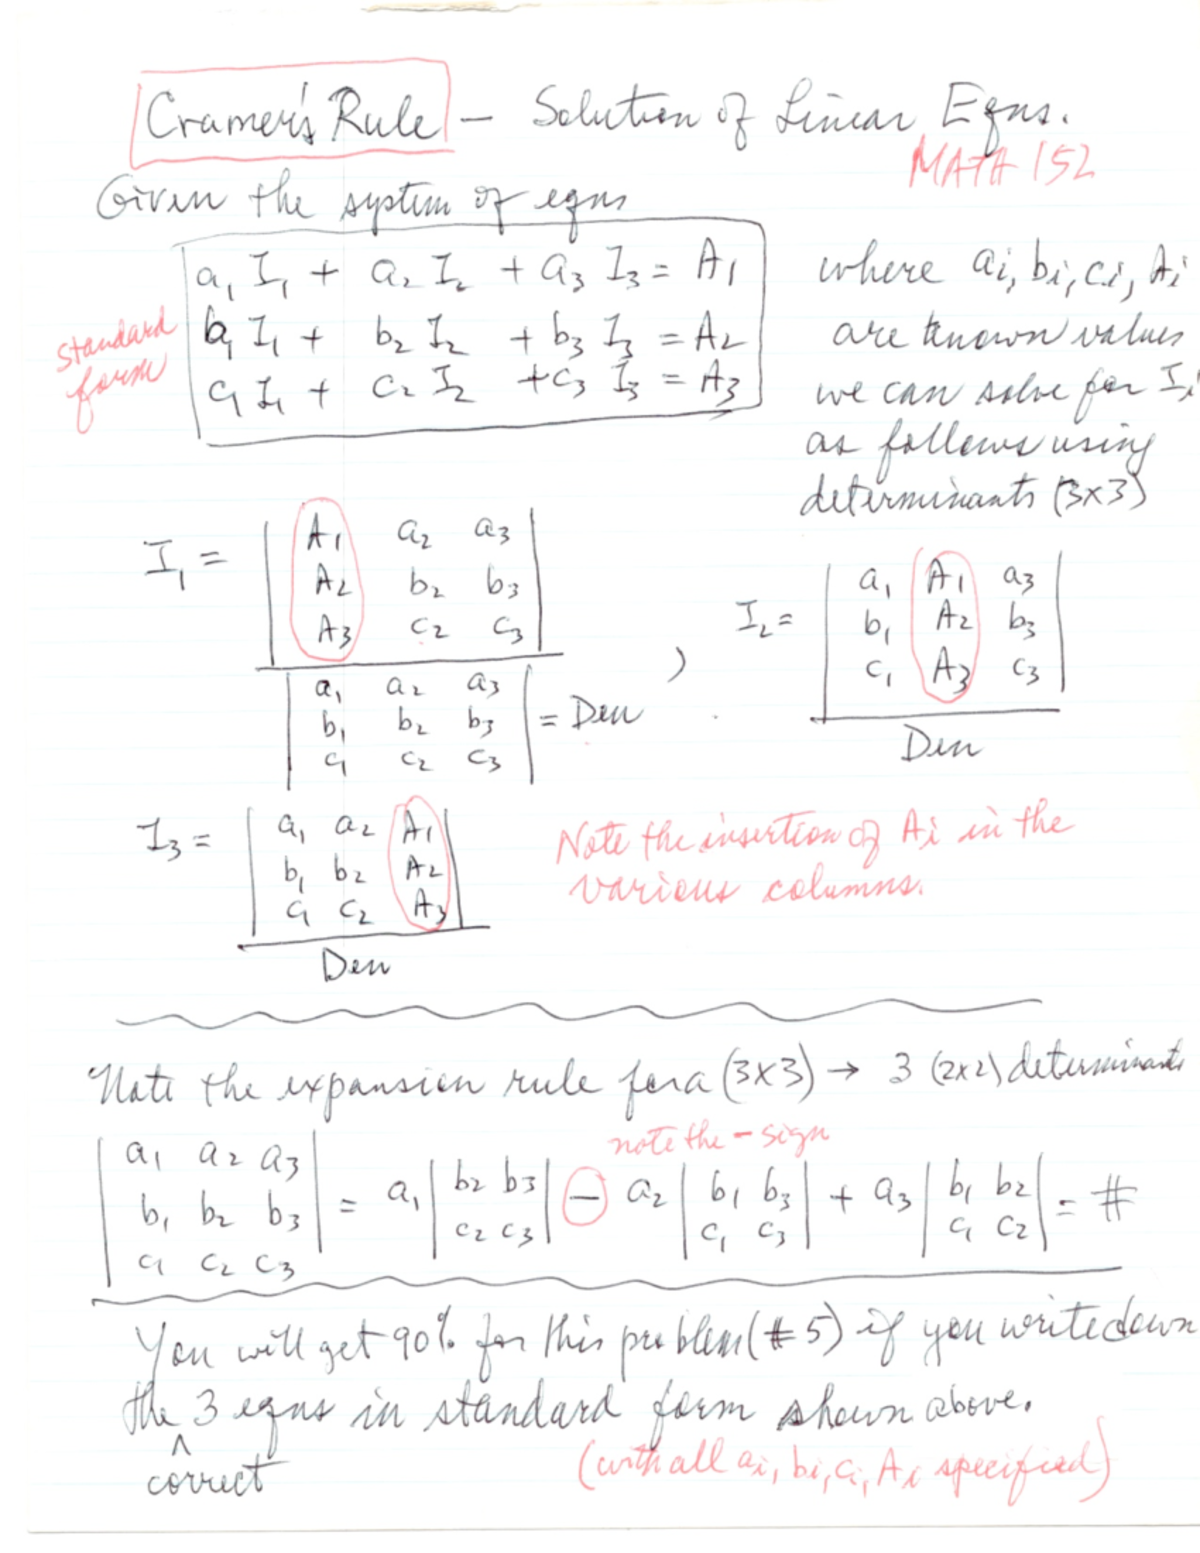 Cramer's Rule – Solution of Linear Eqns.
MATH 152
Given the system of eqns
a₁ I₁ + a₂ I₂ + a₃ I₃ = A₁
b₁ I₁ + b₂ I₂ + b₃ I₃ = A₂
c₁ I₁ + c₂ I₂ + c₃ I₃ = A₃
standard
form
where ai, bi, ci, Ai
are known values
we can solve for Ii
as follows using
determinants (3x3)
I₁ = | A₁ a₂ a₃ |
| A₂ b₂ b₃ |
| A₃ c₂ c₃ |
| a₁ a₂ a₃ |
| b₁ b₂ b₃ | = Den
| c₁ c₂ c₃ |
,
I₂ = | a₁ A₁ a₃ |
| b₁ A₂ b₃ |
| c₁ A₃ c₃ |
Den
I₃ = | a₁ a₂ A₁ |
| b₁ b₂ A₂ |
| c₁ c₂ A₃ |
Den
Note the insertion of Ai in the
various columns.
Note the expansion rule for a (3x3) → 3 (2x2) determinants
note the – sign
| a₁ a₂ a₃ |
| b₁ b₂ b₃ | = a₁ | b₂ b₃ | – a₂ | b₁ b₃ | + a₃ | b₁ b₂ | = #
| c₁ c₂ c₃ | | c₂ c₃ | | c₁ c₃ | | c₁ c₂ |
You will get 90% for this problem (#5) if you write down
the 3 eqns in standard form shown above.
^
correct
(with all ai, bi, ci, Ai specified)